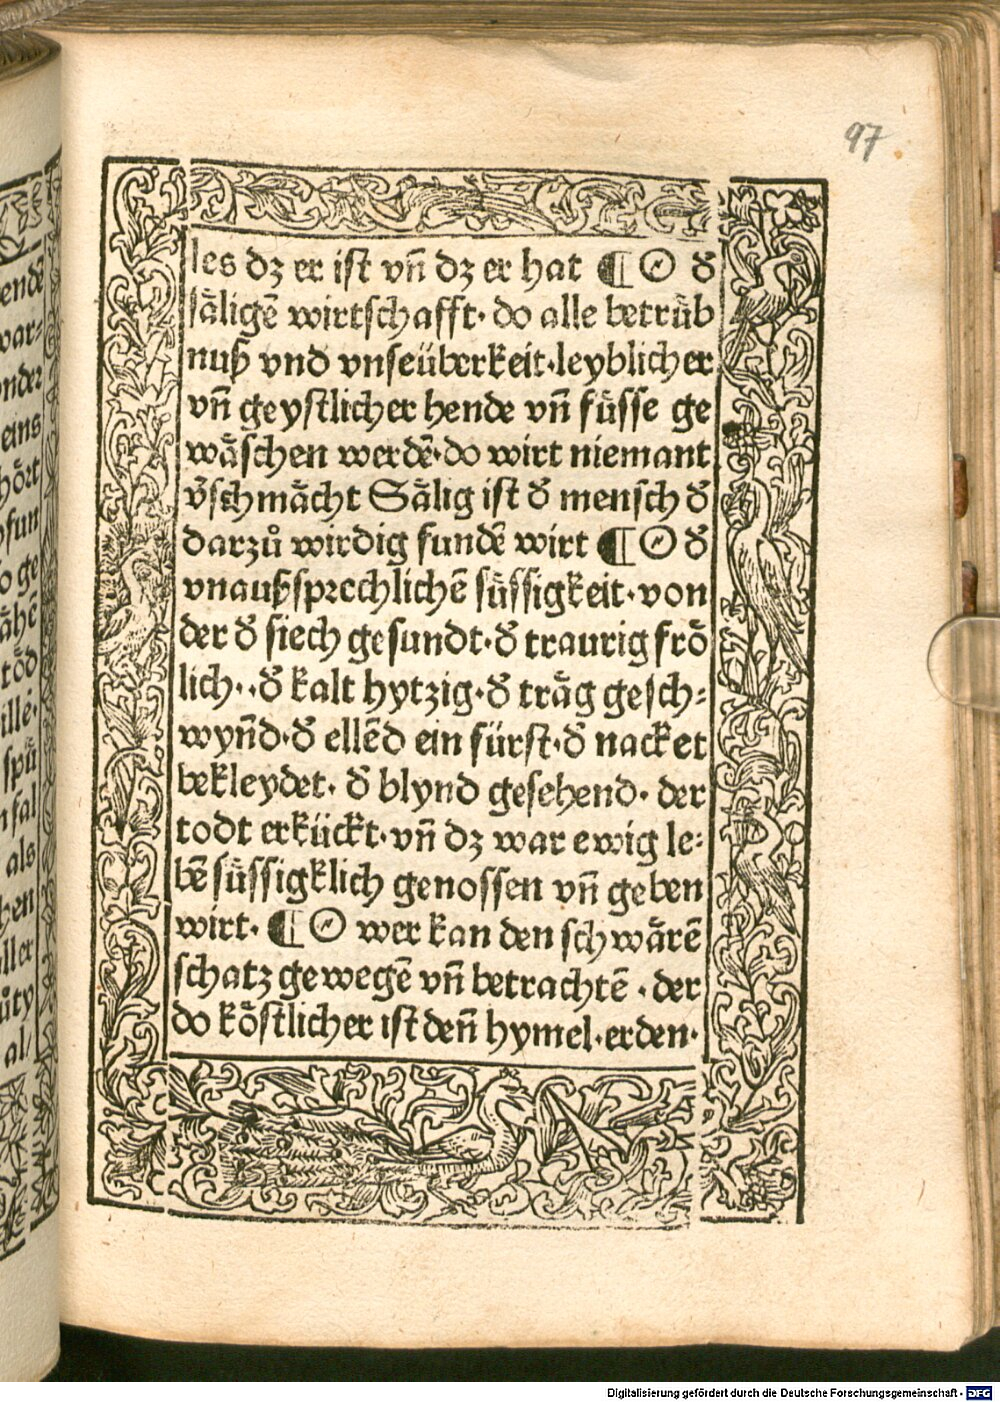 97
les dz er ist vn̄ dz er hat ¶ O d̕
sͤaligē wirtschafft· do alle betrͤub
nuß vnd vnseüberkeit·leyblicher
vn̄ geystlicher hende vn̄ fͤusse ge
wͤaschen werdē·do wirt niemant
v̕schmͤacht Sͤalig ist d̕ mensch d̕
darzů wirdig fundē wirt ¶ O d̕
vnaußsprechlichē sͤussigkeit·von
der d̕ siech gesundt·d̕ traurig frͤo
lich··d̕ kalt hytzig·d̕ trͤag gesch⸗
wyn̄d·d̕ ellēd ein fürst·d̕ nacket
bekleydet· d̕ blynd gesehend· der
todt erkückt·vn̄ dz war ewig le⸗
bē sͤussigklich genossen vn̄ geben
wirt· ¶ O wer kan den schwͤarē
schatz gewegē vn̄ betrachtē ·der
do kͤostlicher ist den̄ hymel·erden·
Digitalisierung gefördert durch die Deutsche Forschungsgemeinschaft - DFG